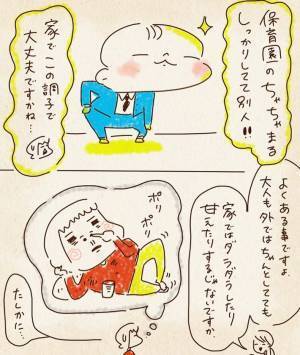 保育園のちゃちゃまる
しっかりしてて別人!!
家でこの調子で
大丈夫ですかね…
よくある事ですよ
大人も外ではちゃんとしてても
家ではダラダラしたり
甘えたりするじゃないですか
ポリ
ポリ
たしかに…